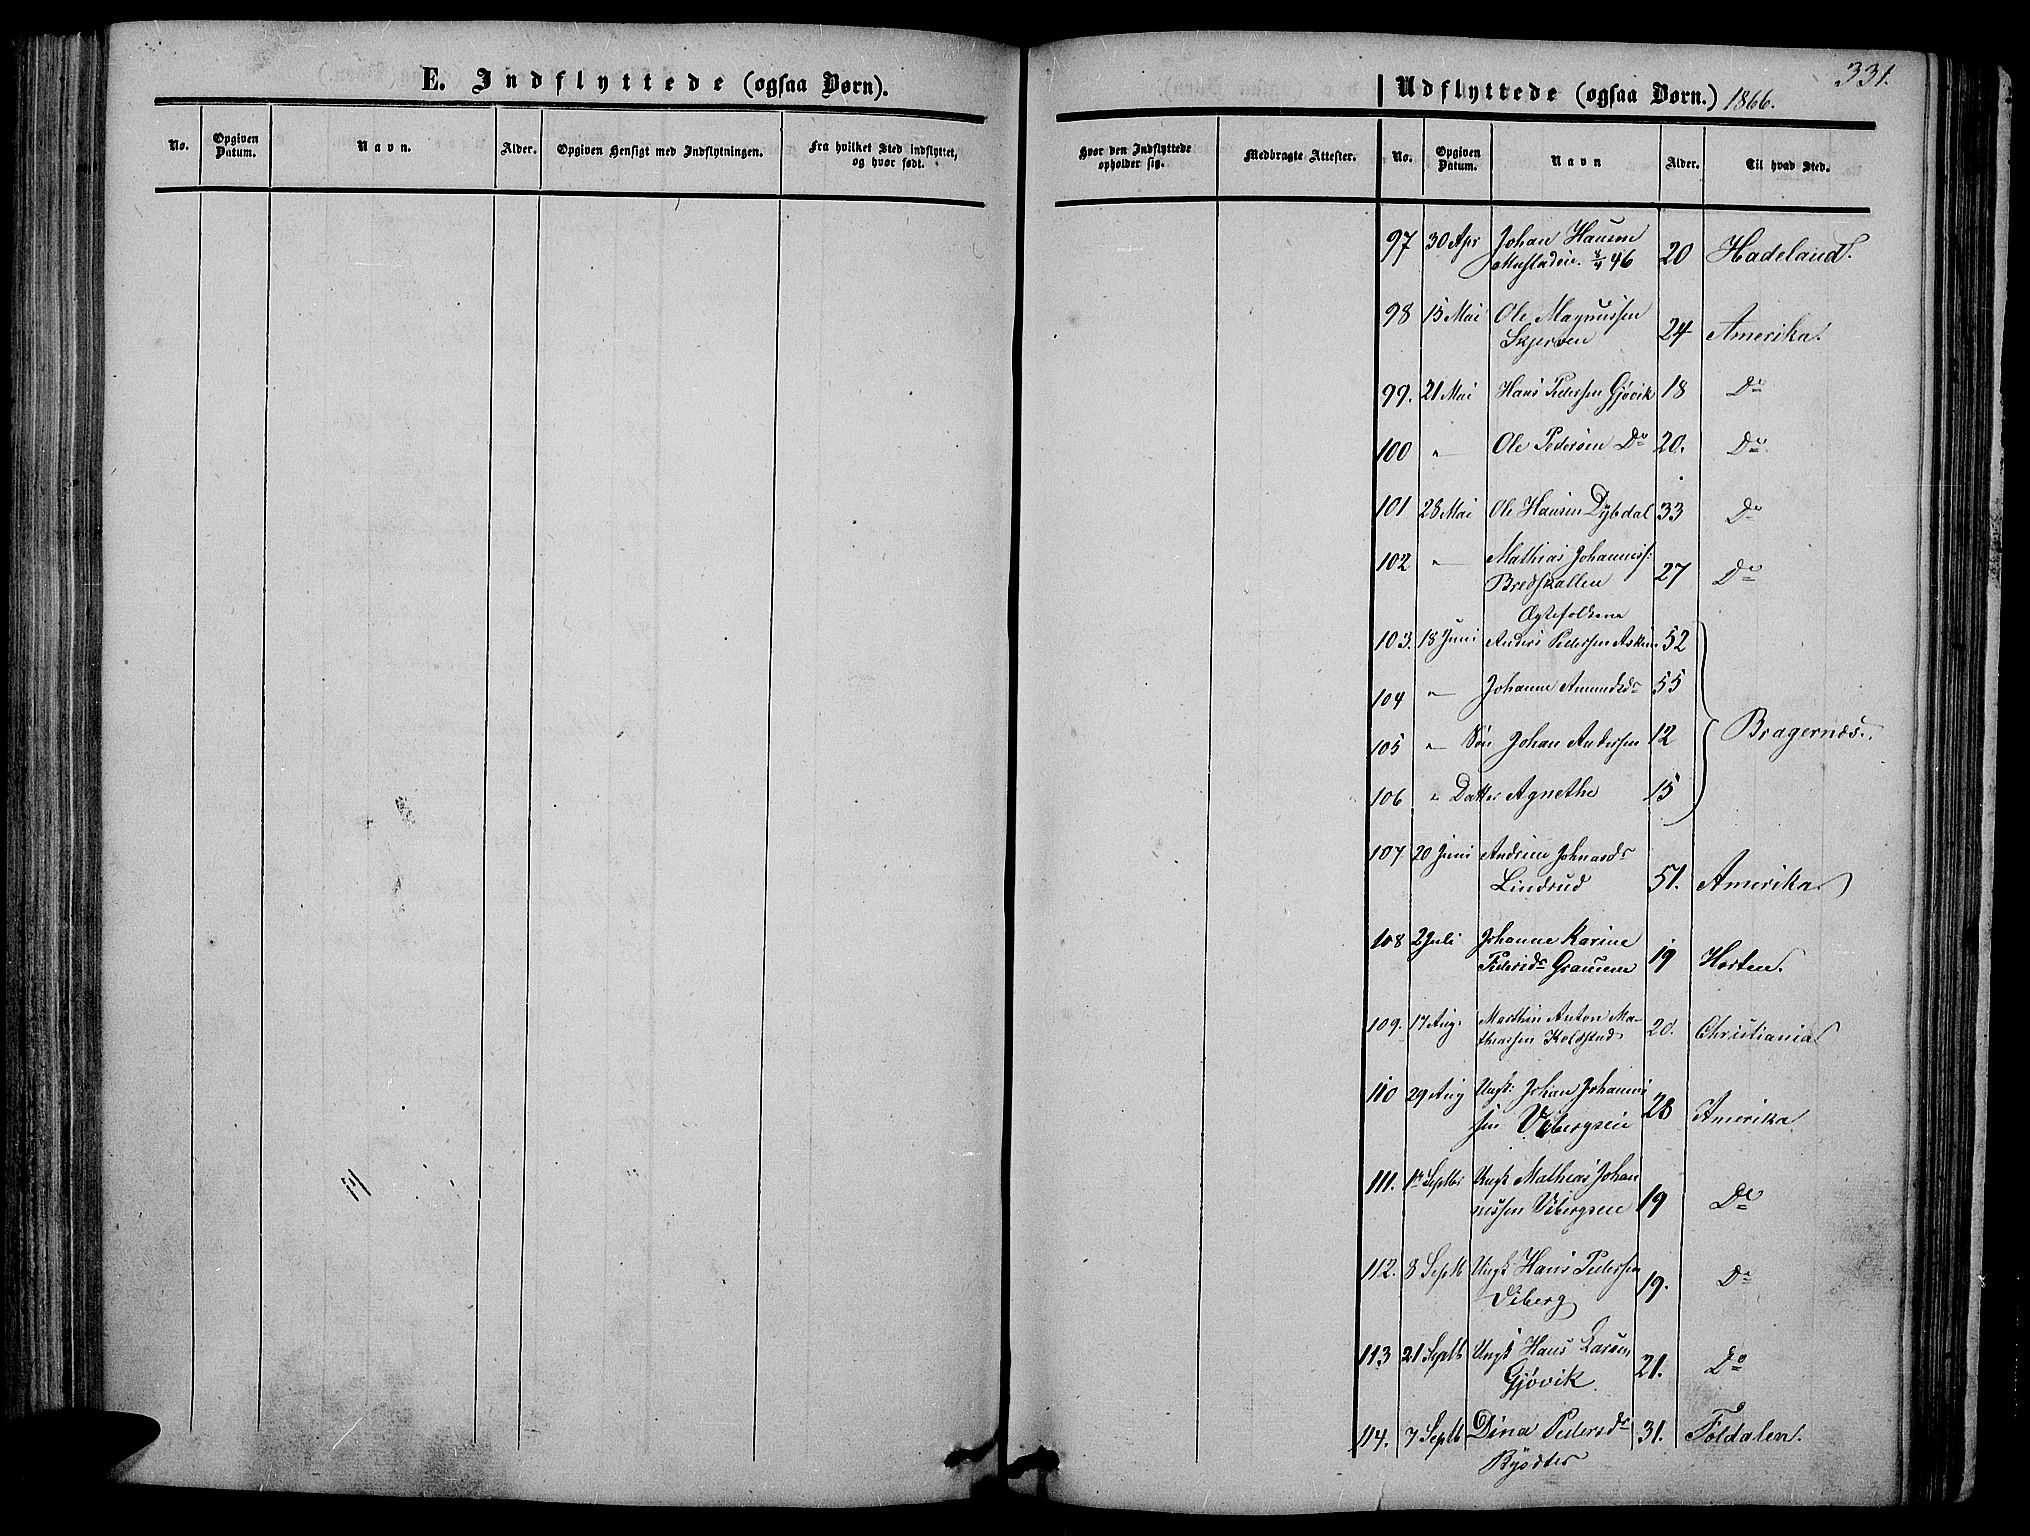 E. Indflyttede (ogsaa Børn).
No.
Opgiven Datum.
Navn.
Alder.
Opgiven Hensigt med Indflytningen.
Fra hvilket Sted indflyttet, og hvor født.
331.
Udflyttede (ogsaa Børn.) 1866.
Hvor den Indflyttede opholder sig.
Medbragte Attester.
No.
Opgiven Datum.
Navn
Alder.
Til hvad Sted.
97 30 Apr Johan Hansen
4/4 46 20 Hadeland.
98 15 Mai Ole Magnussen
Skjerven 24 Amerika.
99. 21 Mai Hans Pedersen Gjøvik 18 Do
100 " Ole Pedersen Do 20. Do
101 28 Mai Ole Hansen Dybdal 33 Do
102 " Mathias Johanness:
Bredskallen 27 Do
Ægtefolkene
103. 18 Juni Anders Pedersen 52
104 " Johanne Amundsdr 55
105 " Søn Johan Andersen 12 Bragernæs.
106 " Datter Agnethe 15
107 20 Juni Andrine Johnsdr
Lindrud 51. Amerika
108 2 Juli Johanne Karine
Pedersdr 19 Horten.
109. 17 Aug. Marthin Anton Ma-
thiassen Koldstad 20. Christiania
110 29 Aug Ungk: Johan Johannes
sen Vibergseie 28 Amerika
111. 1ste Septbr Ungk Mathias Johan
nessen Vibergseie 19 Do
112. 8 Septb Ungk Hans Pedersen
Viberg 19. Do
113 21 Septb Ungk Hans Larsen
Gjøvik 21. Do
114. 7 Septb Dina Pedersdr 31. Foldalen.